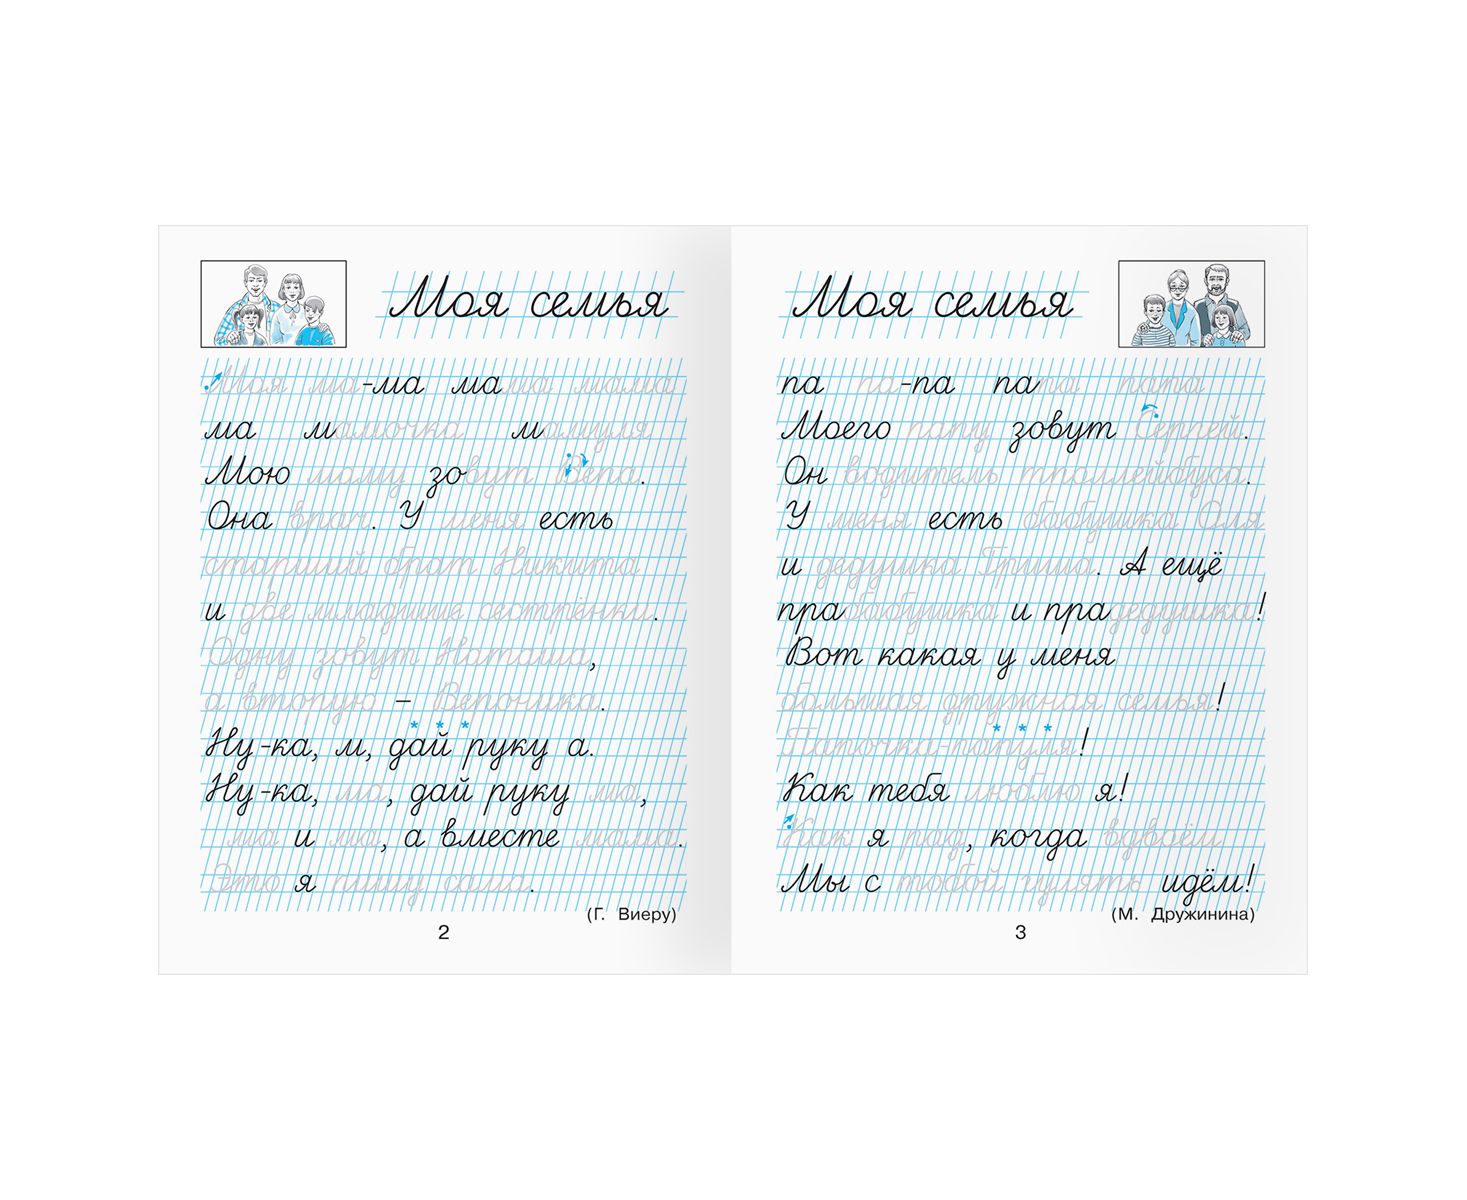 Моя семья
Моя ма-ма мама мама
ма мамочка мамуля
Мою маму зовут Вера.
Она врач. У меня есть
старший брат Никита
и две младшие сестрёнки.
Одну зовут Наташа,
а вторую – Вероника.
* * *
Ну-ка, м, дай руку а.
Ну-ка, ма, дай руку ма,
ма и ма, а вместе мама.
Это я пишу сама.
(Г. Виеру)
2
Моя семья
па па-па папа папа
Моего папу зовут Сергей.
Он водитель троллейбуса.
У меня есть бабушка Оля
и дедушка Гриша. А ещё
прабабушка и прадедушка!
Вот какая у меня
большая дружная семья!
* * *
Папочка-папуля!
Как тебя люблю я!
Как я рад, когда вдвоём
Мы с тобой гулять идём!
(М. Дружинина)
3